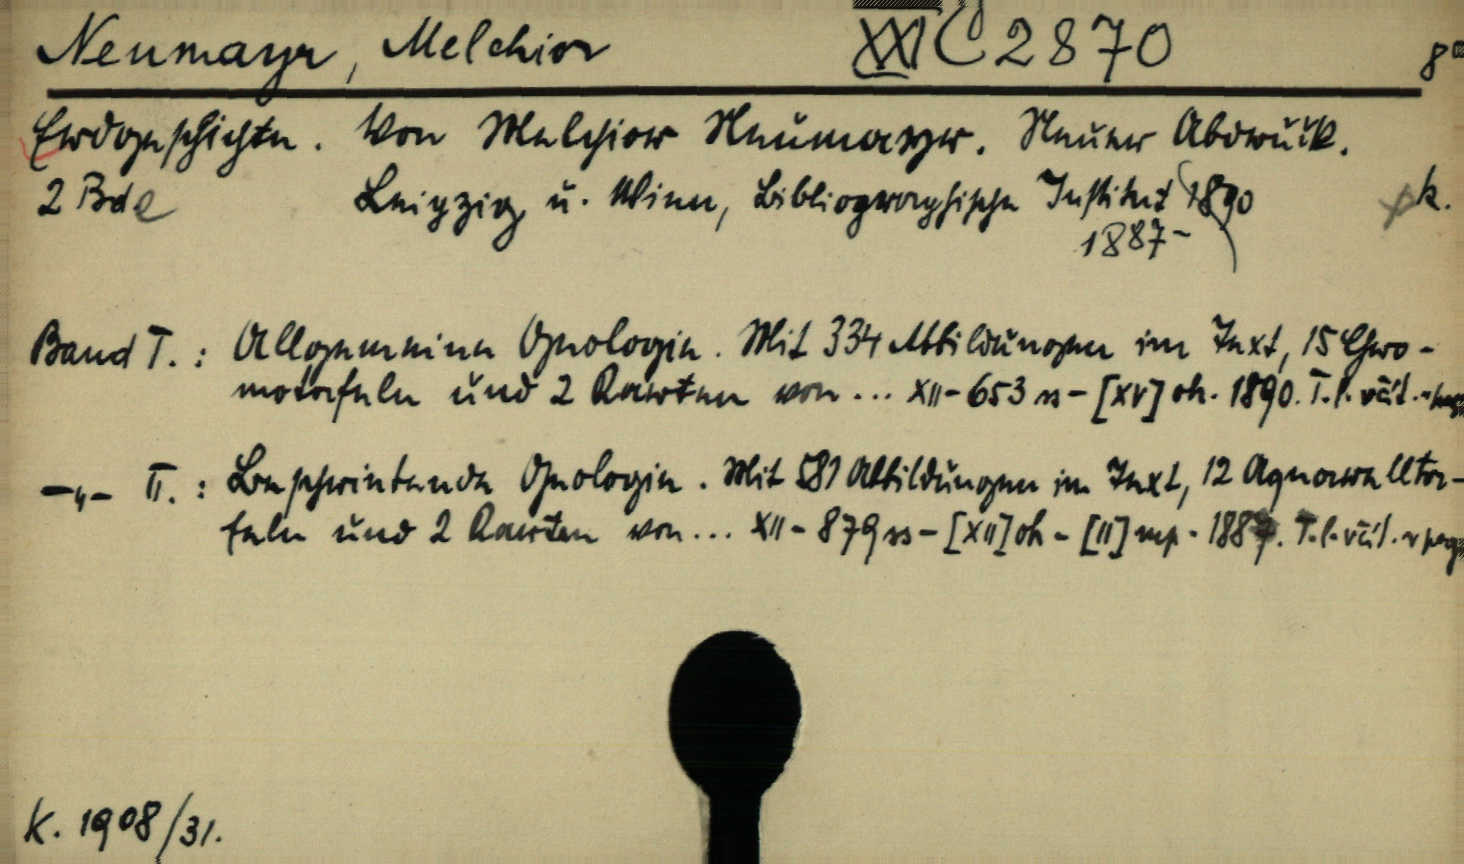 Neumayr, Melchior XXI C 2870 8°
Erdgeschichte. Von Melchior Neumayer. Neuer Abdruck.
2 Bde Leipzig u. Wien, Bibliographische Institut 1890 k.
1887-
Band I. : Allgemeine Geologie. Mit 334 Abbildungen im Text, 15 Chro-
motafeln und 2 Karten von ... XII - 653 ss - [XV] oh. 1890. T. l. väč.
-„- II. : Beschreibende Geologie. Mit 581 Abbildungen im Text, 12 Aquarelltа-
feln und 2 Karten von ... XII - 879 ss - [XII] oh - [II] mp. 1887. T. l. väč.
K. 1908/31.